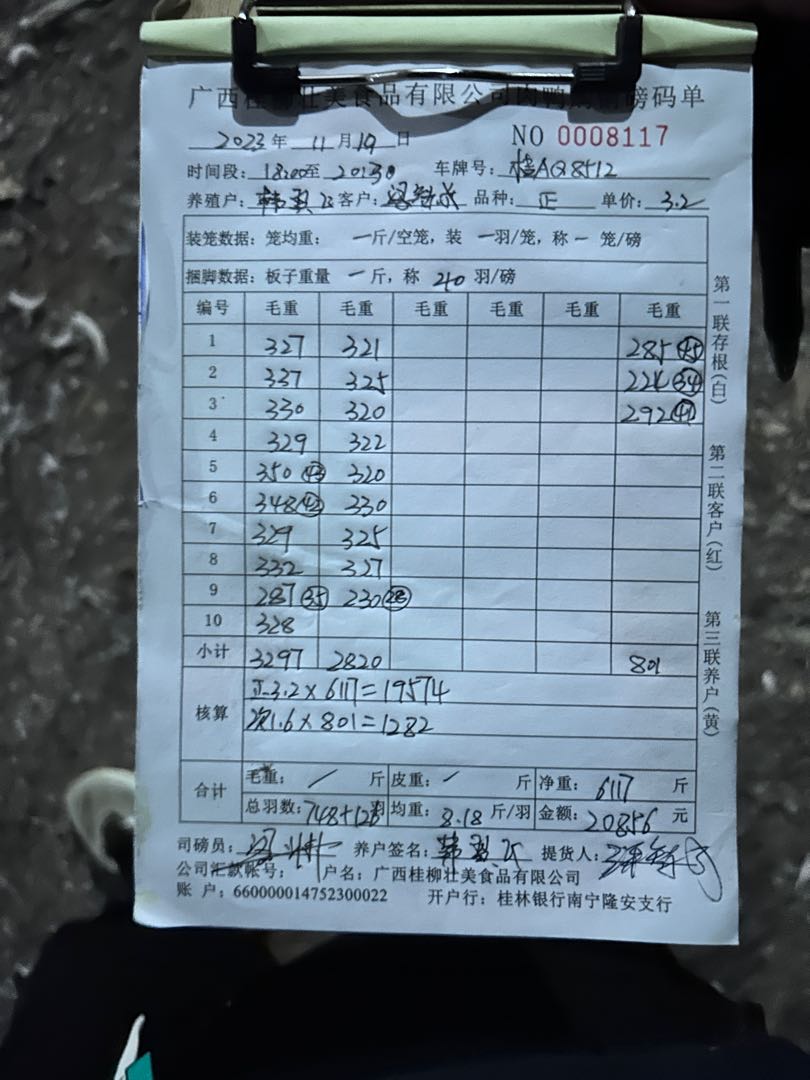 广西桂柳壮美食品有限公司肉鸭 磅码单
2023年 11月19日 NO 0008117
时间段: 18:00至 20:30 车牌号: 桂AQ8512
养殖户: 韩 飞 客户: 品种: 正 单价: 3.2
装笼数据: 笼均重: 一斤/空笼, 装 一羽/笼, 称一 笼/磅
捆脚数据: 板子重量 一斤, 称 40 羽/磅
编号 毛重 毛重 毛重 毛重 毛重 毛重
1 327 321 285 45
2 337 325 224 34
3 330 320 292 41
4 329 322
5 350 43 320
6 348 42 330
7 329 325
8 332 327
9 287 35 230 28
10 328
小计 3297 2820 801
核算 正3.2×6117=19574
次1.6×801=1282
合计 毛重: / 斤 皮重: / 斤 净重: 6117 斤
总羽数: 748+120 均重: 8.18 斤/羽 金额: 20856 元
司磅员: 养户签名: 韩 飞 提货人:
公司汇款帐号: 户名: 广西桂柳壮美食品有限公司
账 户: 660000014752300022 开户行: 桂林银行南宁隆安支行
第一联存根(白)
第二联客户(红)
第三联养户(黄)